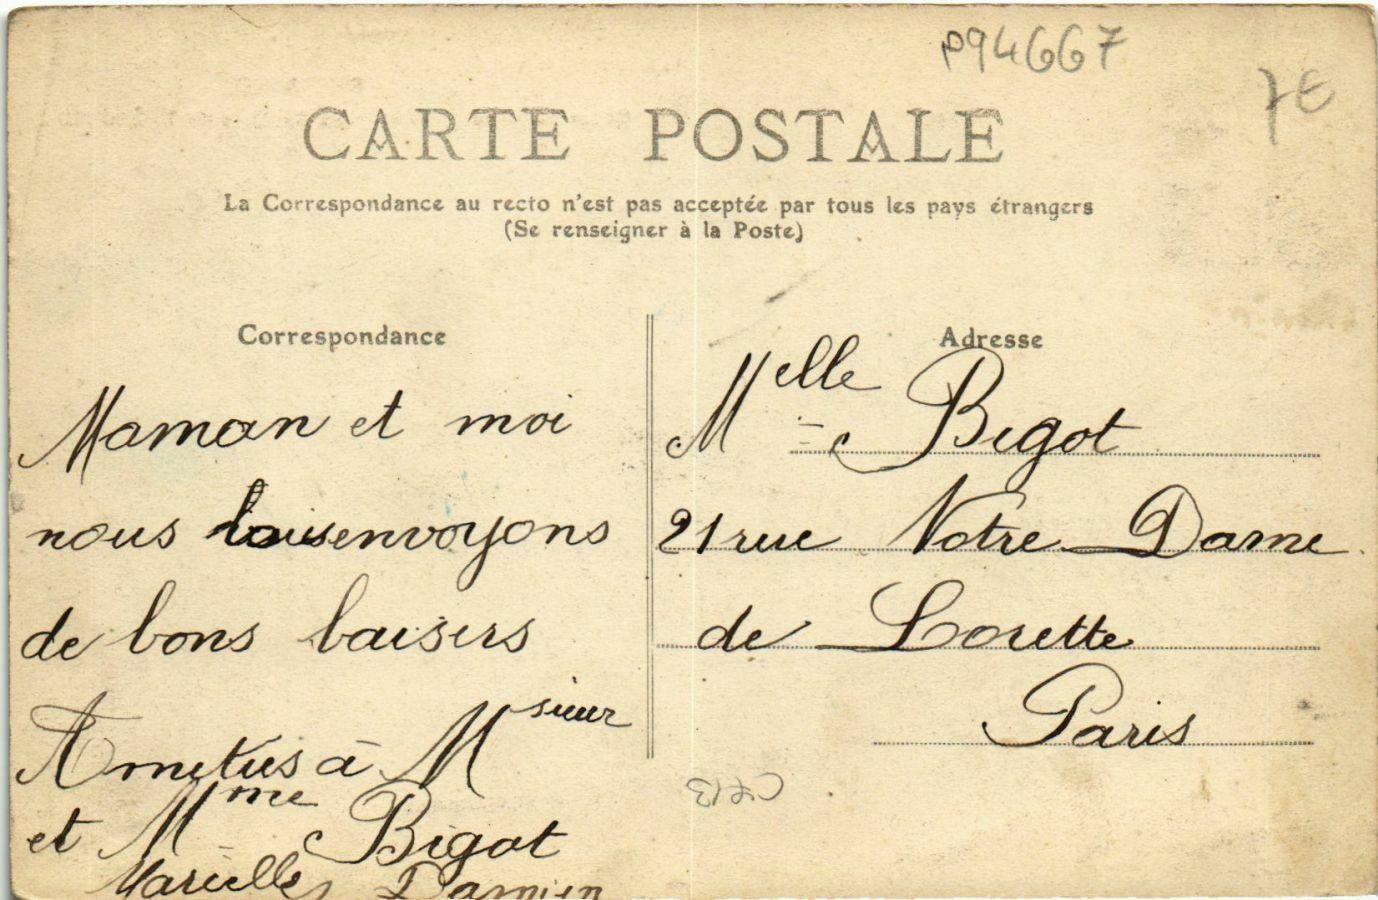 P94667
7E
CARTE POSTALE
La Correspondance au recto n'est pas acceptée par tous les pays étrangers
(Se renseigner à la Poste)
Correspondance
Adresse
Maman et moi
nous envoyons
de bons baisers
Amitiés à Msieur
et Mme Bigot
Marcelle Damien
Melle Bigot
21 rue Notre Dame
de Lorette
Paris